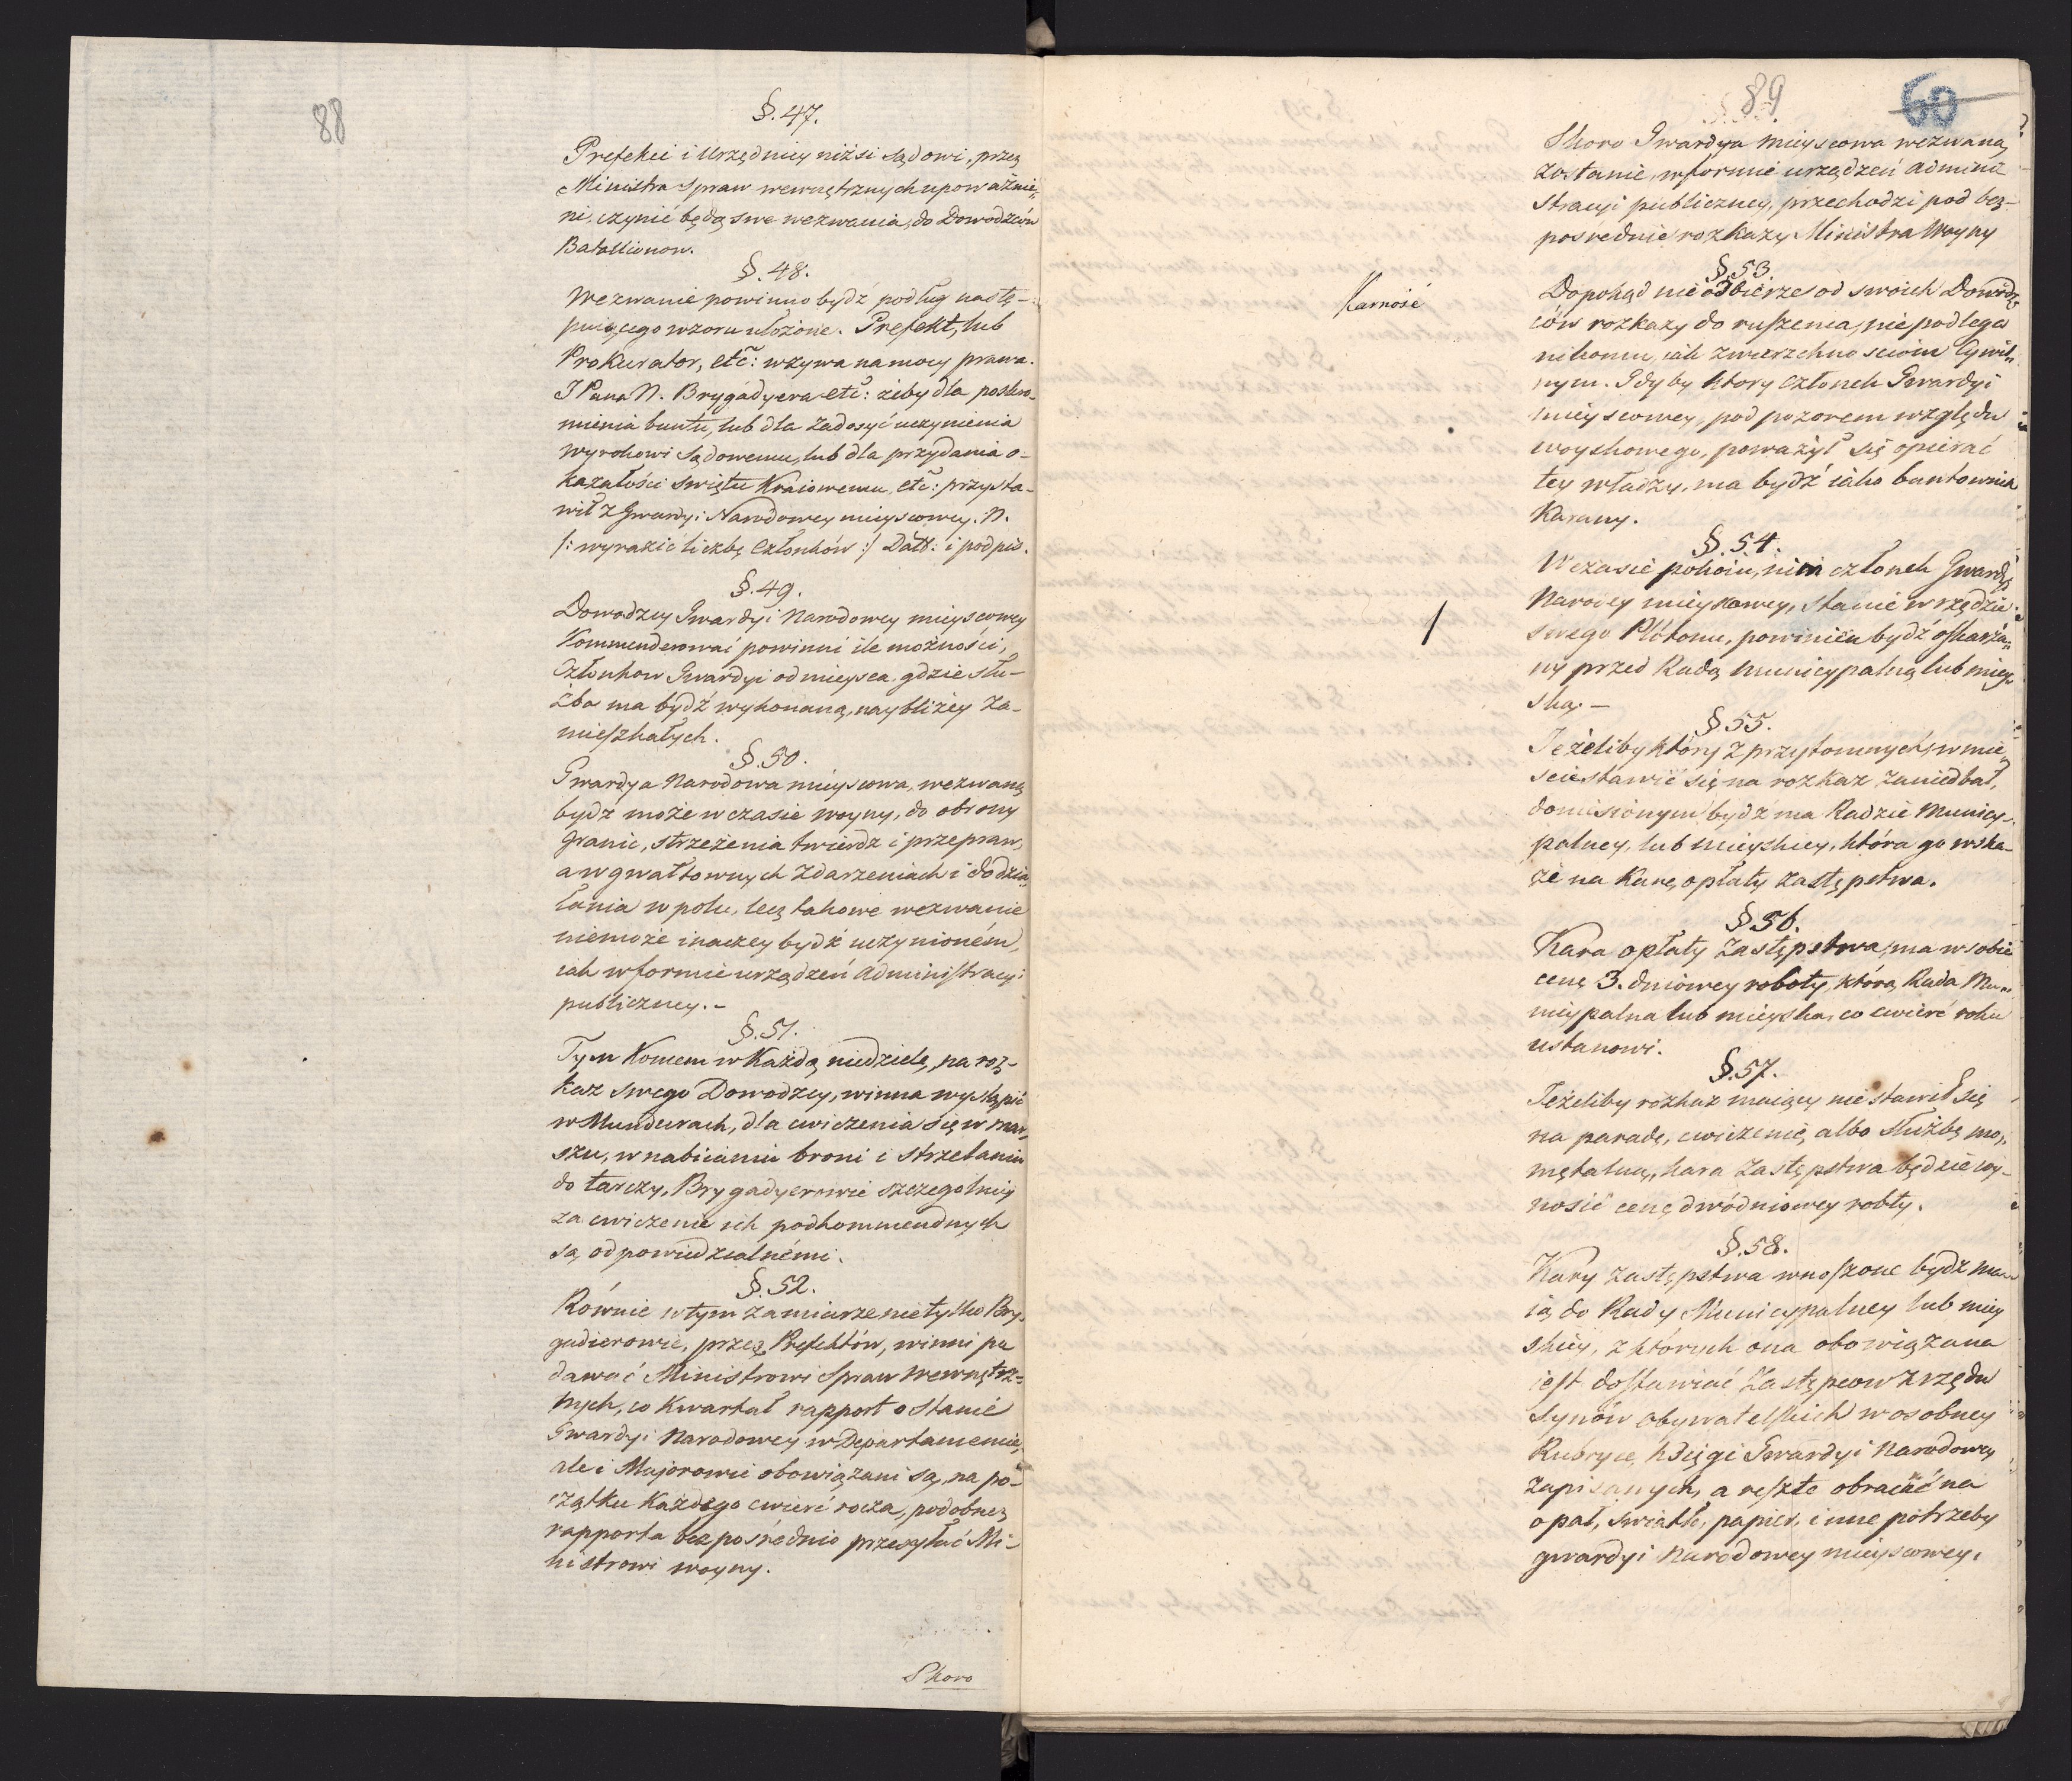 88
§. 47.
Prefekci i Urzędnicy niżsi sądowi, przez
Ministra spraw wewnętrznych upoważnie„
ni, czynić będą swe wezwania, do Dowodzców
Batallionow.
§. 48.
Wezwanie powinno bydź podług nastę-
puiącego wzoru ułożone. Prefekt, lub
Prokurator, etc: wzywa na mocy prawa.
JPana N. Brygadyera etc: żeby dla poskro-
mienia buntu, lub dla zadosyć uczynienia
wyrokowi sądowemu, lub dla przydania o-
kazałości świętu Kraiowemu, etc: przysta-
wił z Gwardyi Narodowey mieyscowey. N.
/: wyrazić liczbę Członków :/ Datt: i podpis.
§. 49.
Dowodzcy Gwardyi Narodowey mieyscowey
Kommenderować powinni ile możności,
Członkow Gwardyi od mieysca, gdzie słu-
żba ma bydź wykonaną, naybliżey za-
mieszkałych.
§. 50.
Gwardya Narodowa mieyscowa, wezwaną
bydź może w czasie woyny, do obrony
granic, strzeżenia twierdz i przepraw,
a w gwałtownych zdarzeniach i do dzia„
łania w polu, lecz takowe wezwanie
niemoże inaczey bydź uczynioném,
iak w formie urządzeń Administracyi
publiczney. -
§. 51.
Tym Koncem w Każdą niedzielę, na roz-
kaz swego Dowodzcy, winna wystąpić
w Mundurach, dla cwiczenia się w mar„
szu, w nabiianiu broni i strzelaniu
do tarczy, Brygadyerowie szczegolniey
za cwiczenie ich podkommendnych
są, odpowiedzialnémi.
§. 52.
Równie w tym zamiarze nietylko Bry„
gadierowie, przez Prefektów, winni po
dawać Ministrowi Spraw Wewnętrz=
nych, co Kwartał rapport o stanie
Gwardyi Narodowey w Departamencie,
ale i Majorowie obowiązani są, na po-
czątku Każdego cwierć rocza, podobnez
rapporta bezposrednio przesyłać Mi-
nistrowi woyny.
Skoro
89
60
Skoro Gwardya mieyscowa wezwaną
zostanie, w formie urządzeń Admini=
stracyi publiczney, przechodzi pod bez-
posrednie rozkazy Ministra Woyny
§. 53.
Karność
Dopokąd nie odbierze od swoich Dowodz
ców rozkazy do ruszenia, nie podlega
nikomu, iak zwierzchnościom Cywil„
nym. Gdyby ktory członek Gwardyi
mieyscowey, pod pozorem względu
woyskowego, poważył się opierać
tey władzy, ma bydź iako buntownik
Karany.
§. 54.
W czasie pokoiu, nim członek Gwardyi
Narodey mieyscowey, stanie w rzędzie
swego Plótonu, powinien bydź oskarżo„
ny przed Radą municypalną lub miey
ską. —
§ 55.
Jeżeliby który z przytomnych w mie„
scie stawić się na rozkaz zaniedbał,
doniesionym bydź ma Radzie Municy-
palney, lub mieyskiey, która go wska-
że na Karę opłaty zastępstwa.
§ 56.
Kara opłaty zastępstwa, ma w sobie
cenę 3. dniowey roboty, którą Rada Mu„
nicypalna lub mieyska, co cwierć roku
ustanowi.
§. 57.
Jeżeliby rozkaz maiący nie stawił się
na paradę, cwiczenie, albo służbę mo„
mętalną, kara zastępstwa będzie wy-
nosić cenę dwódniowey robty.
§. 58.
Kary zastępstwa wnoszone bydź ma
ią do Rady Municypalney lub miey
skiey, z których ona obowiązana
iest dostawiać Zastępcow z rzędu
Synów obywatelskich w osobney
Rubryce, księgi Gwardyi Narodowey
zapisanych, a resztę obracać na
opał, swiatło, papier, i inne potrzeby
gwardyi Narodowey mieyscowey.